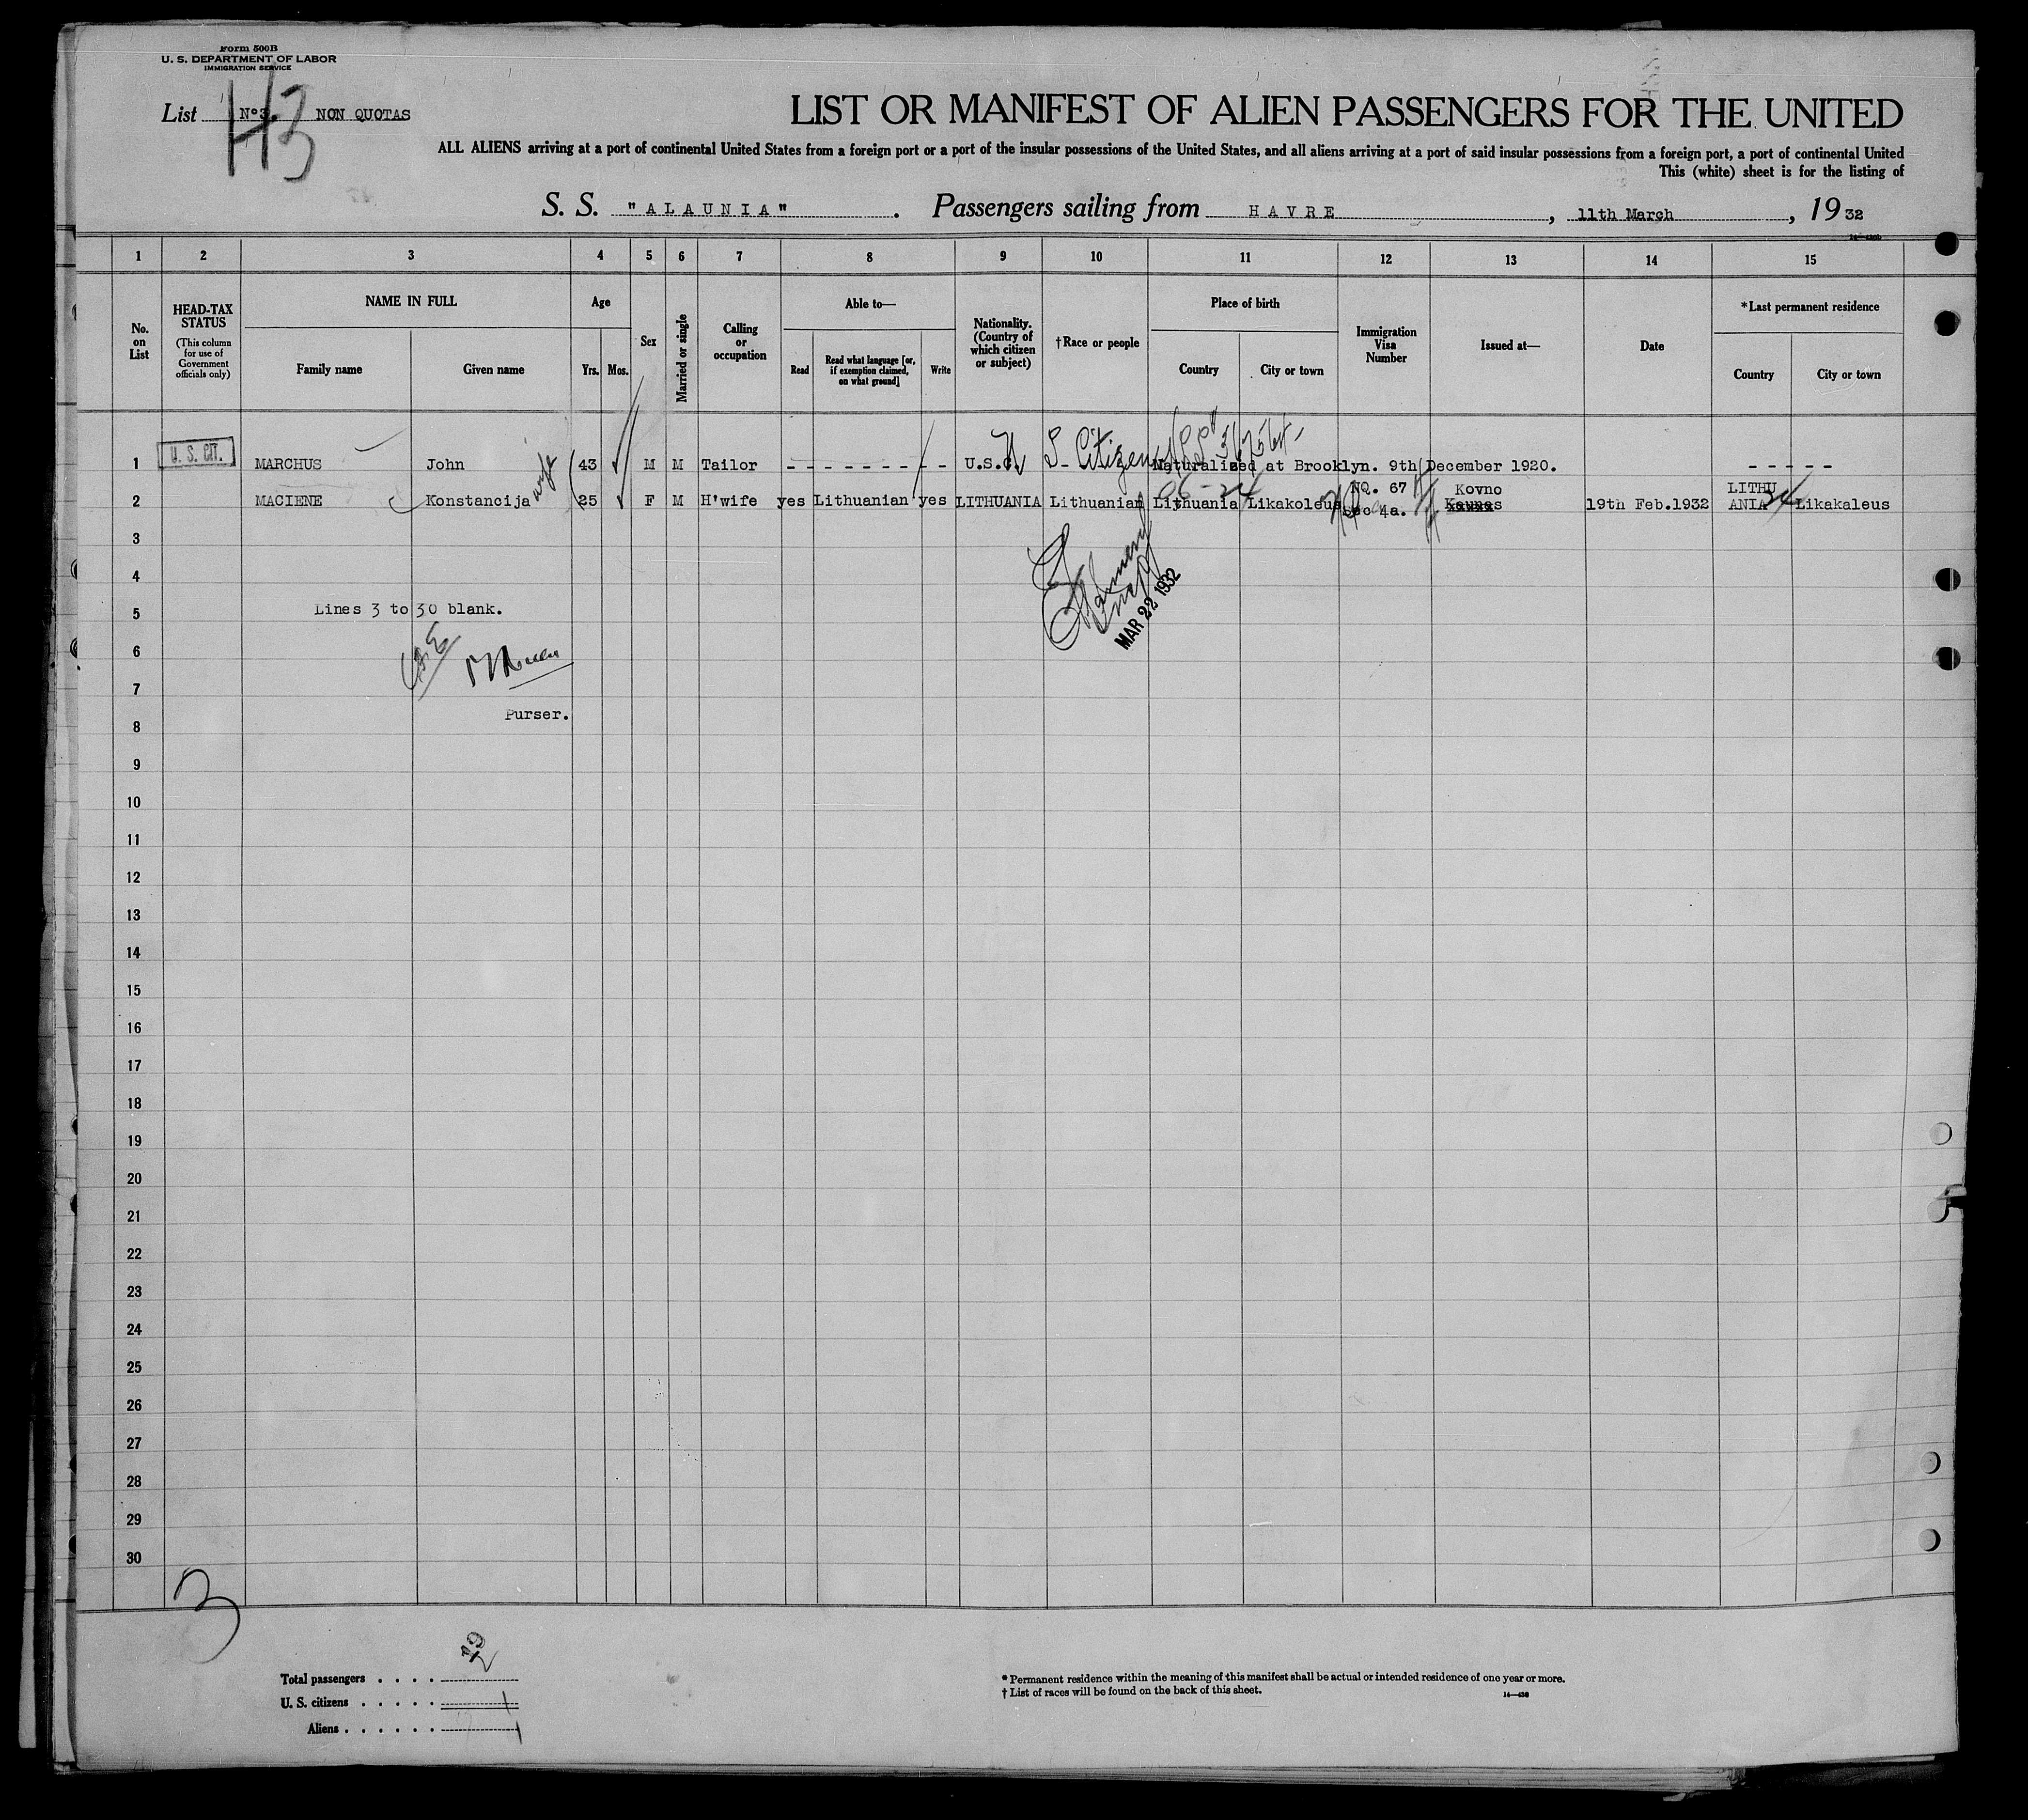 Form 500B
U. S. DEPARTMENT OF LABOR
IMMIGRATION SERVICE
List No 3. NON QUOTAS
H3
LIST OR MANIFEST OF ALIEN PASSENGERS FOR THE UNITED
ALL ALIENS arriving at a port of continental United States from a foreign port or a port of the insular possessions of the United States, and all aliens arriving at a port of said insular possessions from a foreign port, a port of continental United
This (white) sheet is for the listing of
S. S. "ALAUNIA". Passengers sailing from HAVRE, 11th March, 1932
1 2 3 4 5 6 7 8 9 10 11 12 13 14 15
No. on List
HEAD-TAX STATUS
(This column for use of Government officials only)
NAME IN FULL
Family name Given name
Age
Yrs. Mos.
Sex
Married or single
Calling or occupation
Able to—
Read Read what language [or, if exemption claimed, on what ground] Write
Nationality. (Country of which citizen or subject)
†Race or people
Place of birth
Country City or town
Immigration Visa Number
Issued at—
Date
*Last permanent residence
Country City or town
1 U. S. CIT. MARCHUS John 43 M M Tailor - - - - - - - - - U.S.C. Naturalized at Brooklyn. 9th December 1920. - - - - -
U S Citizen
wife
2 MACIENE Konstancija 25 F M H'wife yes Lithuanian yes LITHUANIA Lithuanian Lithuania Likakoleus NQ. 67 Sec 4a. Kovno Kaunas 19th Feb.1932 LITHU ANIA Likakaleus
3
4
5 Lines 3 to 30 blank.
Admitted
MAR 22 1932
6
7
Purser.
8
9
10
11
12
13
14
15
16
17
18
19
20
21
22
23
24
25
26
27
28
29
30
3
Total passengers . . . . 2
U. S. citizens . . . . . 1
Aliens . . . . . . 1
* Permanent residence within the meaning of this manifest shall be actual or intended residence of one year or more.
† List of races will be found on the back of this sheet.